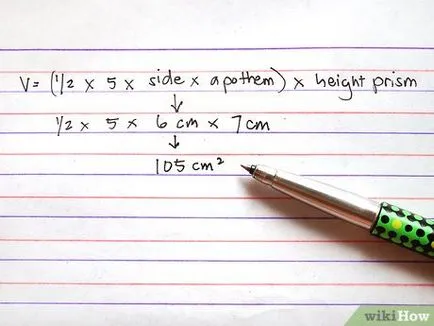 V= (1/2 x 5 x side x apothem) x height prism
↓
1/2 x 5 x 6 cm x 7cm
↓
105 cm²
wikiHow